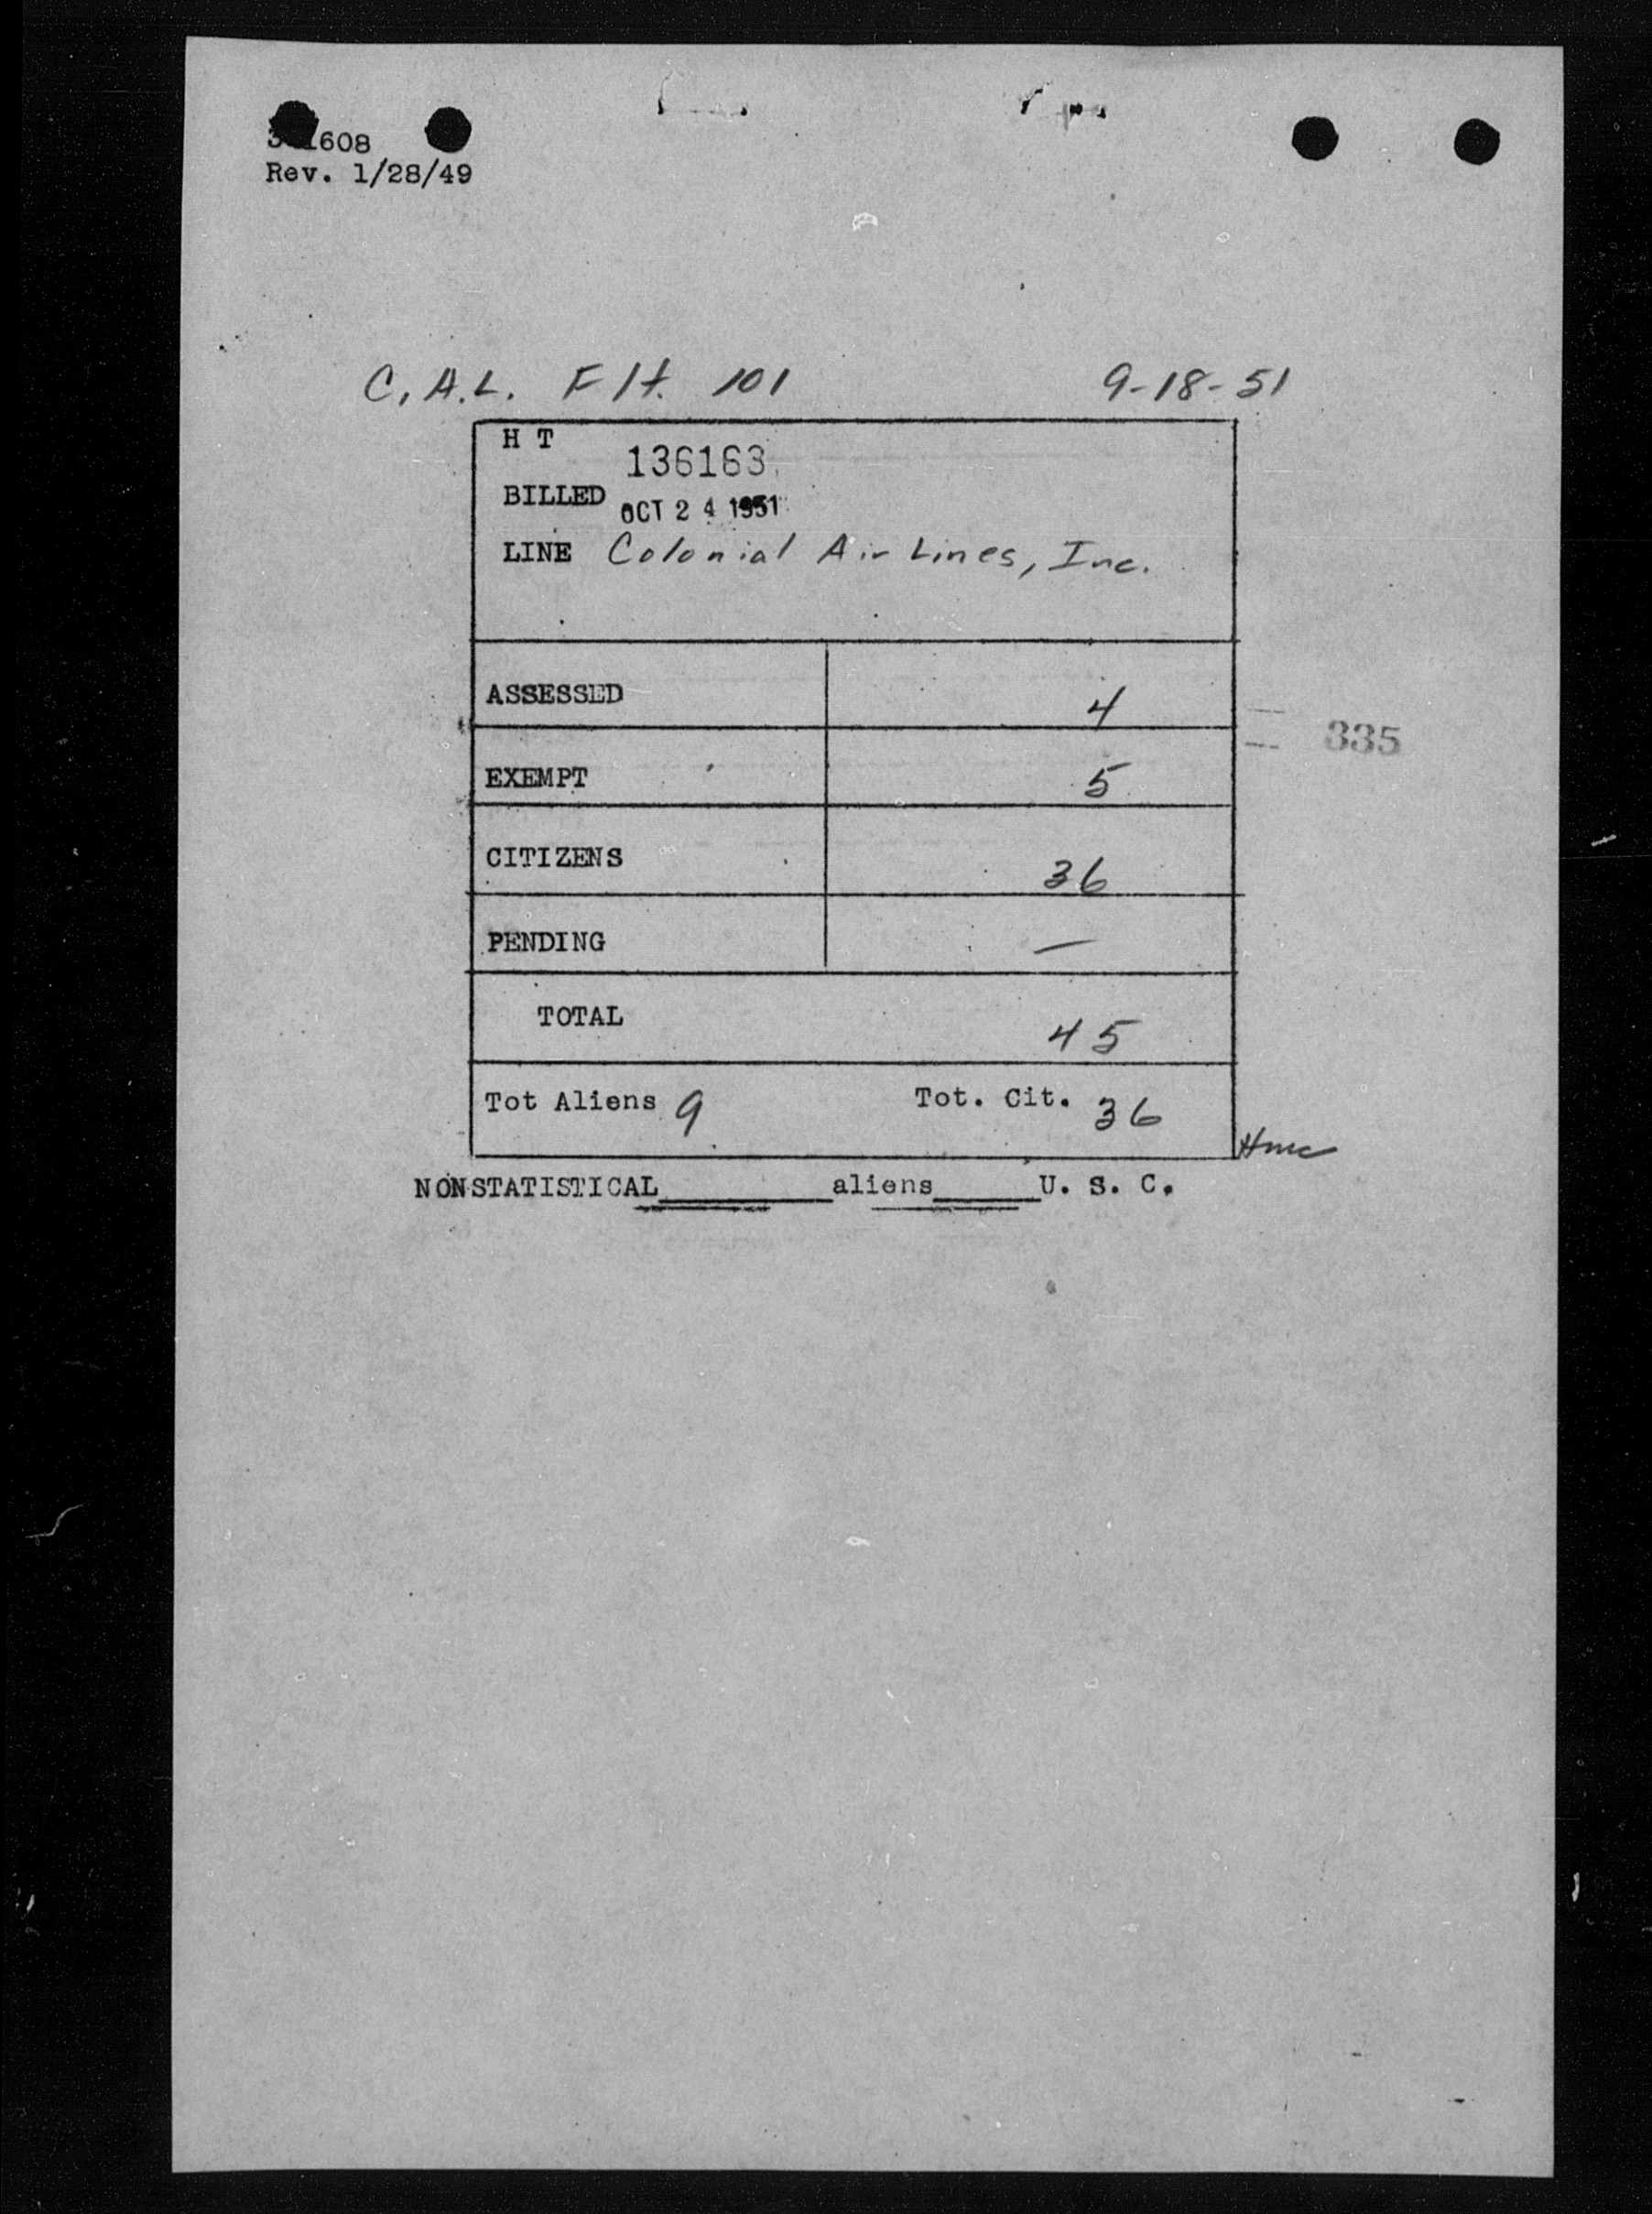 1608
Rev. 1/28/49
C.A.L. Flt. 101 9-18-51
H T 136163
BILLED OCT 24 1951
LINE Colonial Air Lines, Inc.
ASSESSED 4
335
EXEMPT 5
CITIZENS 36
PENDING —
TOTAL 45
Tot Aliens 9 Tot. Cit. 36
NONSTATISTICAL__________aliens______U. S. C.